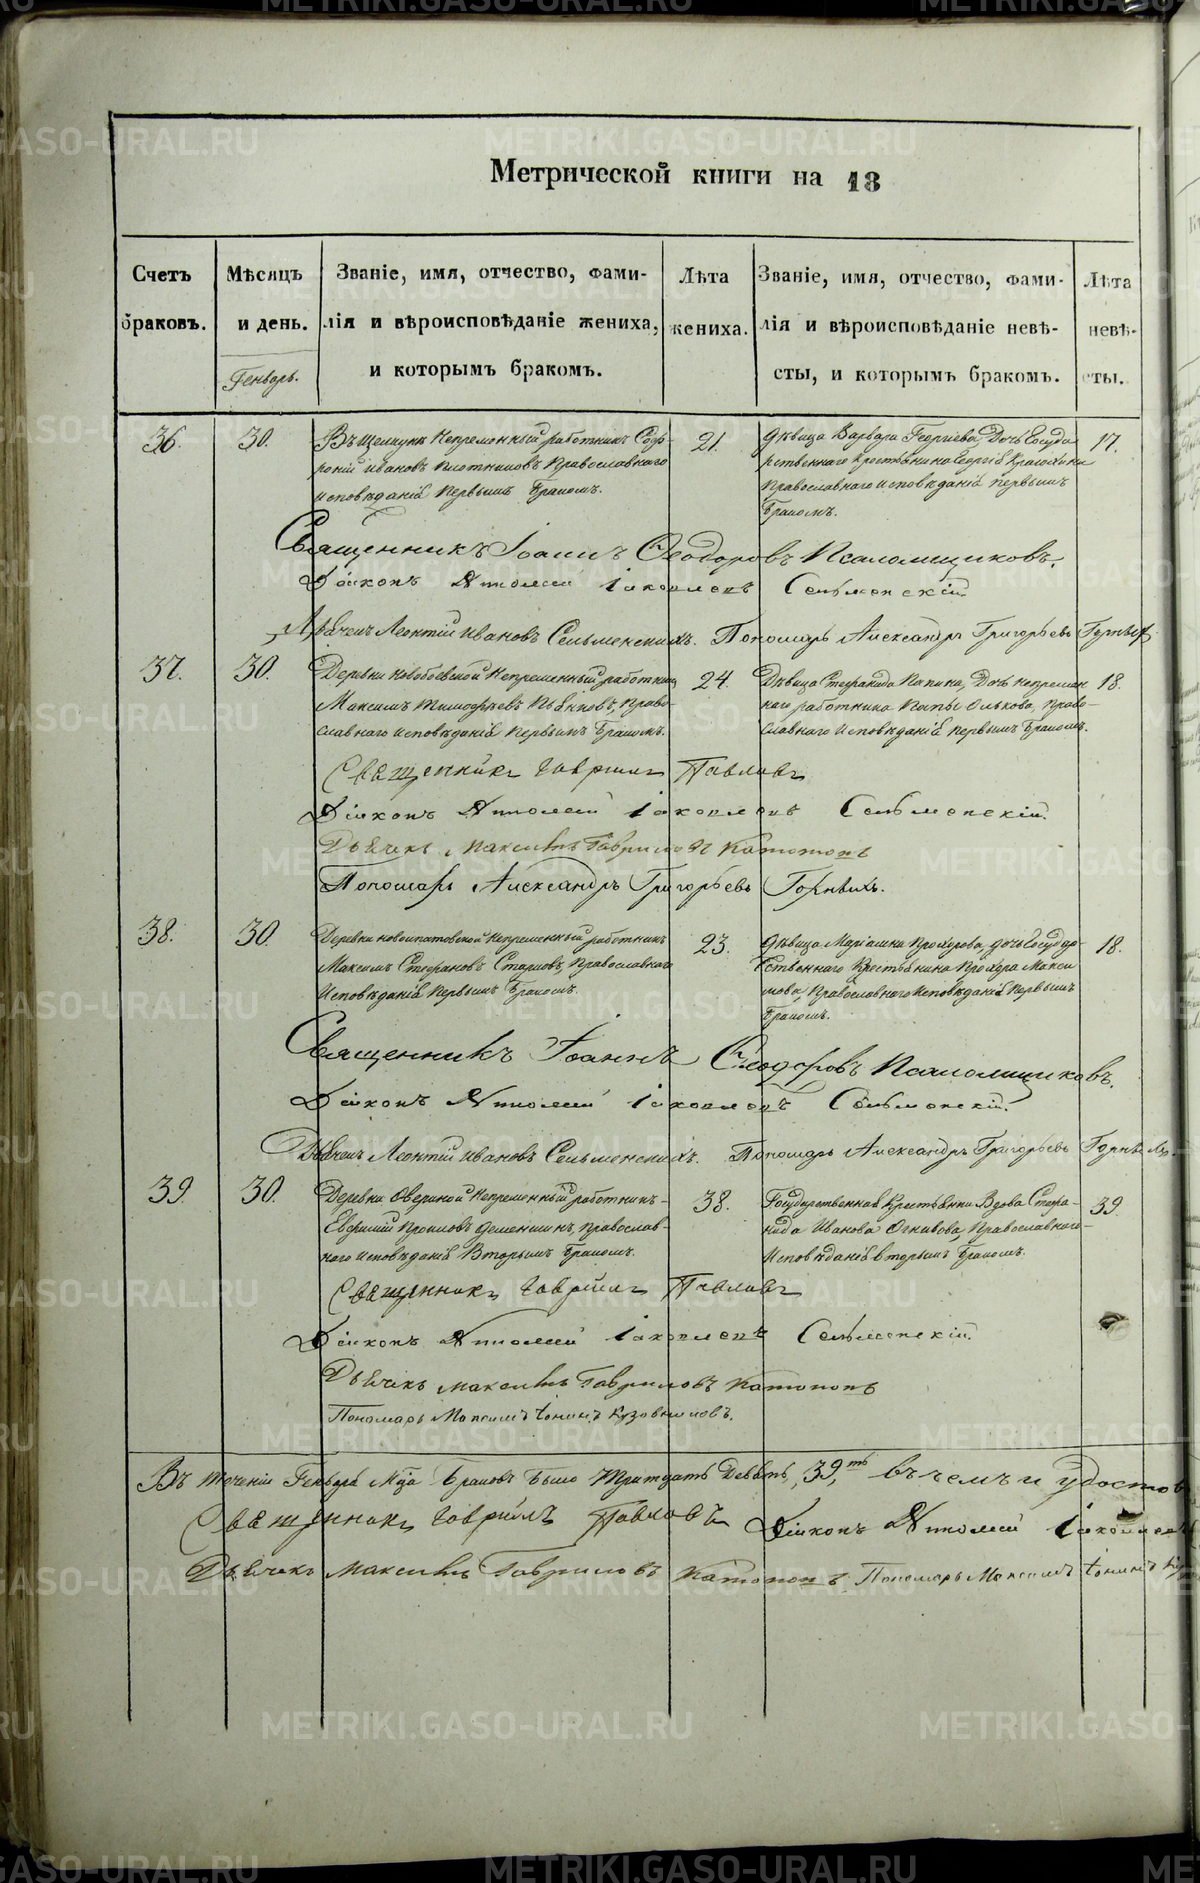 Метрической книги на 18
Счетъ браковъ.
Мѣсяцъ и день.
Званіе, имя, отчество, фами-
лія и вѣроисповѣданіе жениха,
и которымъ бракомъ.
Лѣта жениха.
Званіе, имя, отчество, фами-
лія и вѣроисповѣданіе невѣ-
сты, и которымъ бракомъ.
Лѣта невѣ-
сты.
Генварь.
36. 30.
непременный работникъ Соф-
роній Ивановъ Плотниковъ Православнаго
исповѣданія Первымъ Бракомъ.
21.
Дѣвица Варвара Георгіева, Дочь Государ
ственнаго крестьянина Георгія
Православнаго исповѣданія первымъ
Бракомъ.
17.
Священникъ Іоаннъ Ѳеодоровъ Псаломщиковъ.
Діаконъ Іаковлевъ Сельменскій
Дьячекъ Леонтій Ивановъ Сельменскихъ. Пономарь Александръ Григорьевъ Горныхъ
37. 30.
Деревни непременный работникъ
Максимъ Тимофѣевъ Право-
славнаго исповѣданія Первымъ Бракомъ.
24.
Дѣвица Стефанида Дочь непремен
наго работника Право-
славнаго Исповѣданія первымъ Бракомъ.
18.
Священникъ Гавріилъ Павловъ
Діаконъ Іаковлевъ Сельменскій.
Дьячекъ Максимъ Гавриловъ
Пономарь Александръ Григорьевъ Горныхъ.
38. 30.
Деревни Новоипатовской непременный работникъ
Максимъ Стефановъ Стариковъ, Православнаго
Исповѣданія Первымъ Бракомъ.
23.
Дѣвица Маріамна Прохорова, дочь Государ-
ственнаго Крестьянина Прохора Макси
мова, Православнаго исповѣданія Первымъ
Бракомъ.
18.
Священникъ Іоаннъ Ѳеодоровъ Псаломщиковъ.
Діаконъ Іаковлевъ Сельменскій.
Дьячекъ Леонтій Ивановъ Сельменскихъ. Пономарь Александръ Григорьевъ Горныхъ.
39 30.
Деревни Овериной Непременный работникъ
Евфимій Деменшинъ, Православ-
наго исповѣданія Вторымъ Бракомъ.
38.
Государственная Крестьянка Вдова Стефа-
нида Иванова Огнивова, Православнаго
Исповѣданія вторымъ Бракомъ.
39.
Священникъ Гавріилъ Павловъ
Діаконъ Іаковлевъ Сельменскій.
Дьячекъ Максимъ Гавриловъ
Пономарь Максимъ Кузовниковъ.
Въ теченіи Генваря М-ца Браковъ Было Тритцать Девять, 39, въ чемъ и удостов
Священникъ Гавріилъ Павловъ Діаконъ Іаковлевъ
Дьячекъ Максимъ Гавриловъ Пономарь Максимъ
METRIKI.GASO-URAL.RU